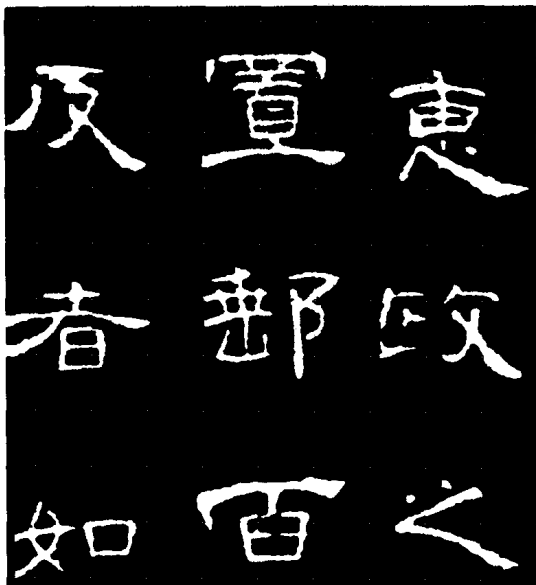 惠政之
置郵百
反者如